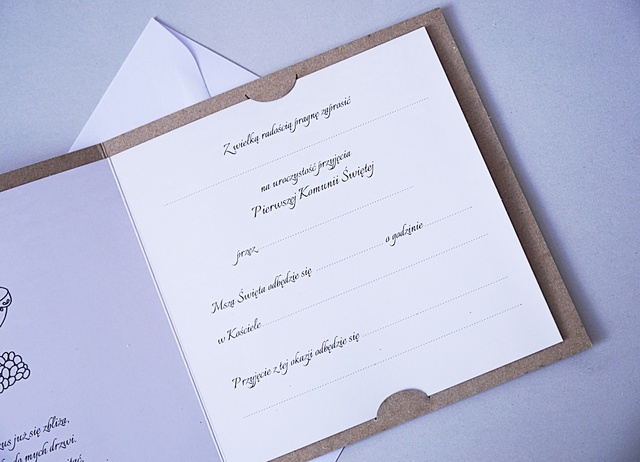 Z wielką radością pragnę zaprosić
na uroczystość przyjęcia
Pierwszej Komunii Świętej
przez
Msza Święta odbędzie się o godzinie
w Kościele
Przyjęcie z tej okazji odbędzie się
już się zbliża,
mych drzwi.